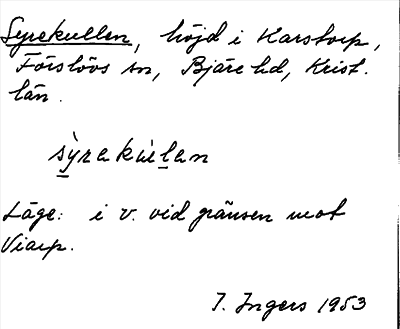 Syrekullen, höjd i Karstorp,
Förslövs sn, Bjäre hd, Krist.
län.
sỳrekùlen
Läge: i v. vid gränsen mot
Viarp.
I. Ingers 1953